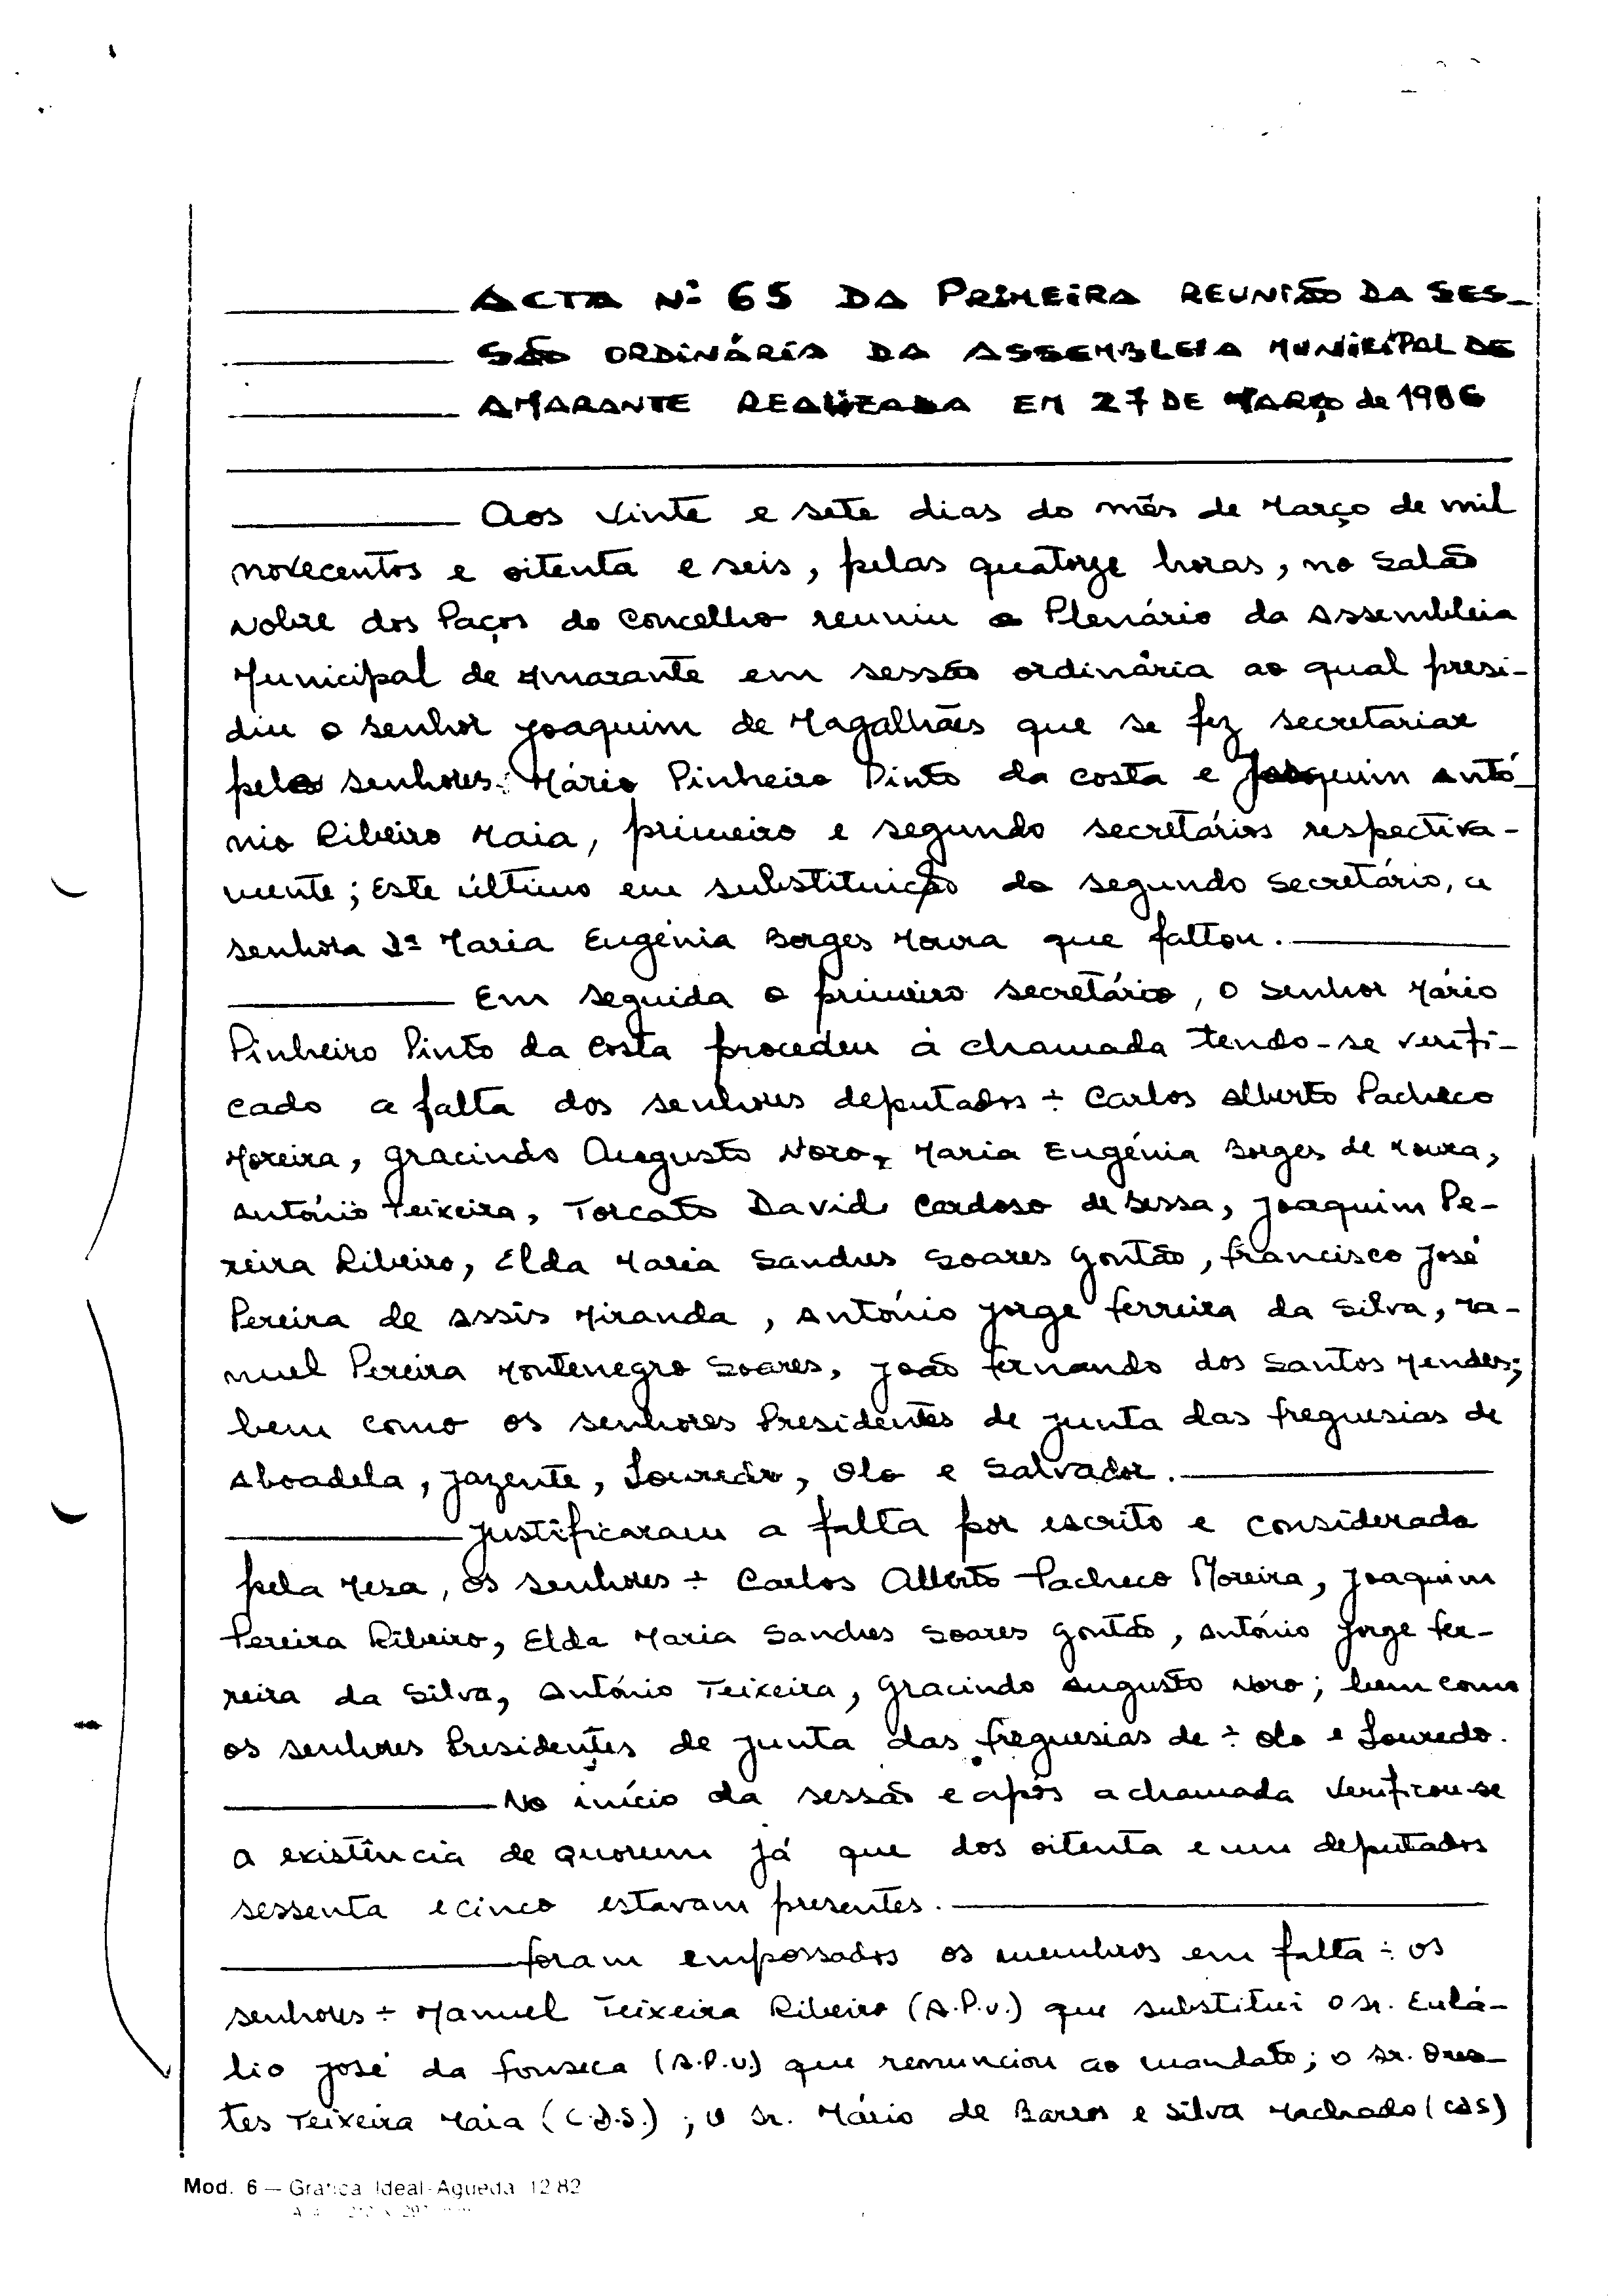 ACTA Nº 65 DA PRIMEIRA REUNIÃO DA SES-
SÃO ORDINÁRIA DA ASSEMBLEIA MUNICIPAL DE
AMARANTE REALIZADA EM 27 DE MARÇO de 1986
Aos vinte e sete dias do mês de Março de mil
novecentos e oitenta e seis, pelas quatorze horas, no Salão
Nobre dos Paços do Concelho reuniu o Plenário da Assembleia
Municipal de Amarante em sessão ordinária ao qual presi-
diu o senhor Joaquim de Magalhães que se fez secretariar
pelos senhores: Mário Pinheiro Pinto da Costa e Joaquim Antó-
nio Ribeiro Maia, primeiro e segundo secretários respectiva-
mente; Este último em substituição do segundo Secretário, a
senhora Dª Maria Eugénia Borges Moura que faltou.
Em seguida o primeiro secretário, o Senhor Mário
Pinheiro Pinto da Costa procedeu à chamada tendo-se verifi-
cado a falta dos senhores deputados ÷ Carlos Alberto Pacheco
Moreira, Gracindo Augusto Noro, Maria Eugénia Borges de Moura,
António Teixeira, Torcato David Cardoso de Sessa, Joaquim Pe-
reira Ribeiro, Elda Maria Sandres Soares Gontão, Francisco José
Pereira de Assis Miranda, António Jorge Ferreira da Silva, Ma-
nuel Pereira Montenegro Soares, João Fernando dos Santos Mendes;
bem como os senhores Presidentes de Junta das freguesias de
Aboadela, Jazente, Louredo, Olo e Salvador.
Justificaram a falta por escrito e considerada
pela Mesa, os senhores ÷ Carlos Alberto Pacheco Moreira, Joaquim
Pereira Ribeiro, Elda Maria Sandres Soares Gontão, António Jorge Fer-
reira da Silva, António Teixeira, Gracindo Augusto Noro; bem como
os senhores Presidentes de Junta das freguesias de ÷ Olo e Louredo.
No início da sessão e após a chamada verificou-se
a existência de quorum já que dos oitenta e um deputados
sessenta e cinco estavam presentes.
Foram empossados os membros em falta ÷ os
senhores ÷ Manuel Teixeira Ribeiro (A.P.U.) que substitui o Sr. Eulá-
lio José da Fonseca (A.P.U.) que renunciou ao mandato; o Sr. Ores-
tes Teixeira Maia (C.D.S.); o Sr. Mário de Barros e Silva Machado (CDS)
Mod. 6 — Gráfica Ideal-Agueda 12 82